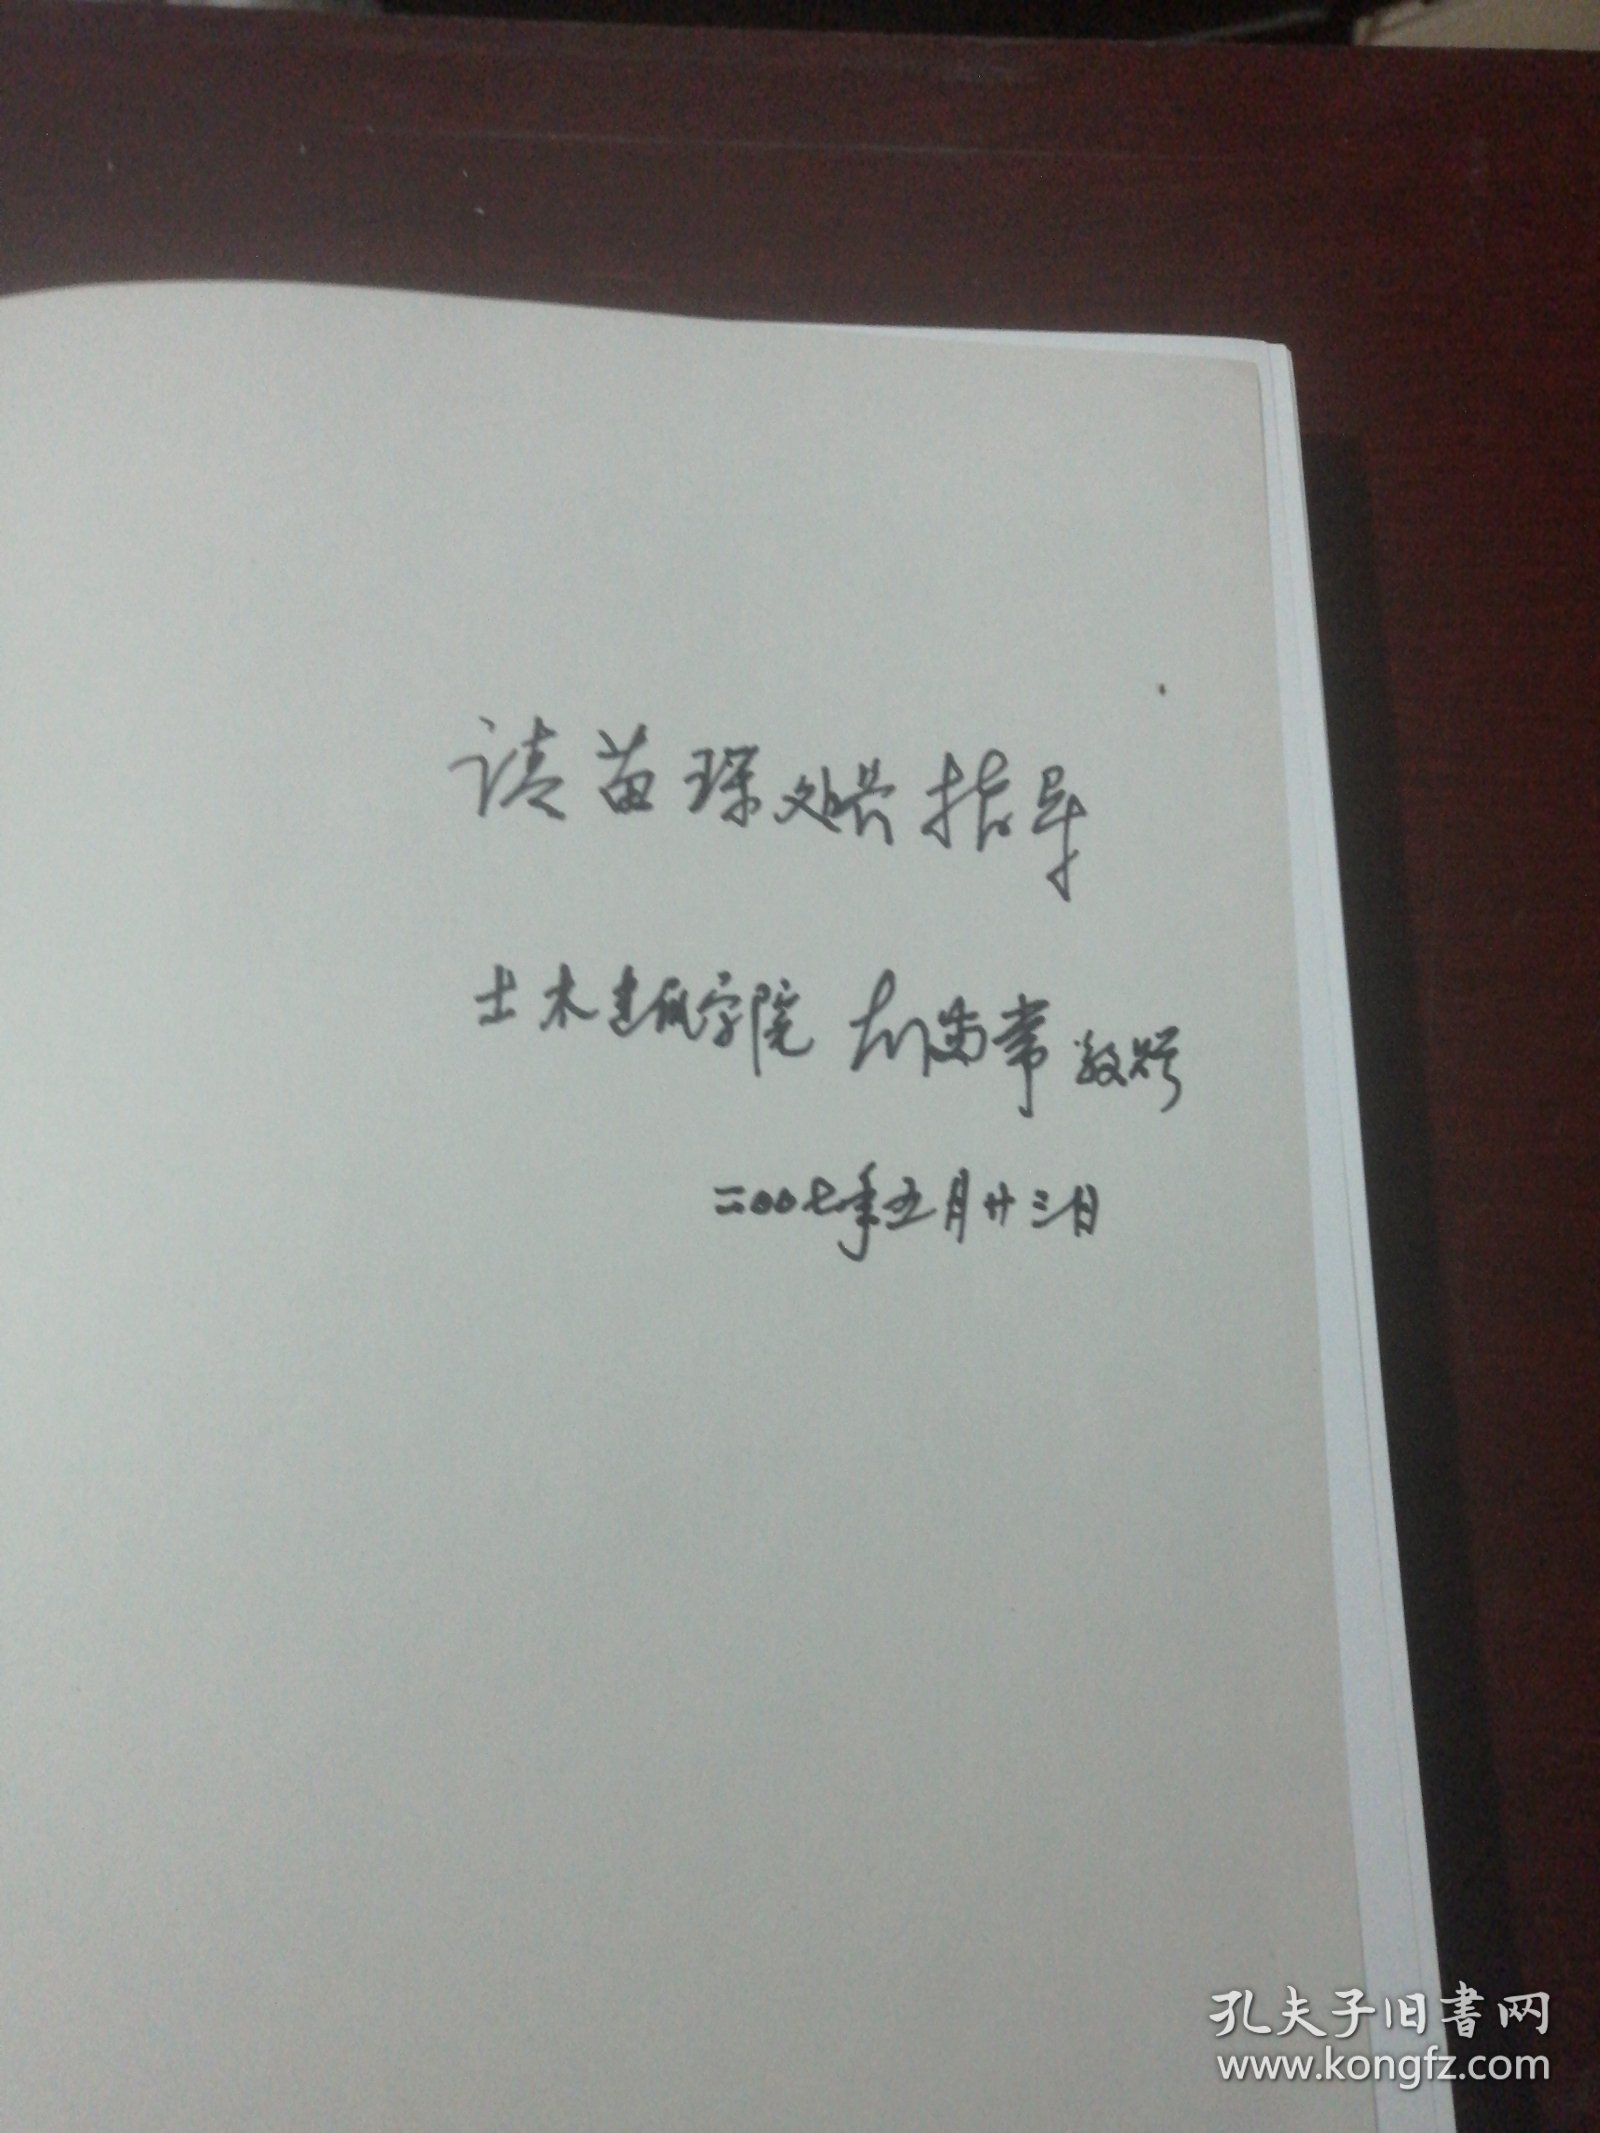 请苗琛处长指导
土木建筑学院 敬赠
二〇〇七年五月廿三日
孔夫子旧书网
www.kongfz.com